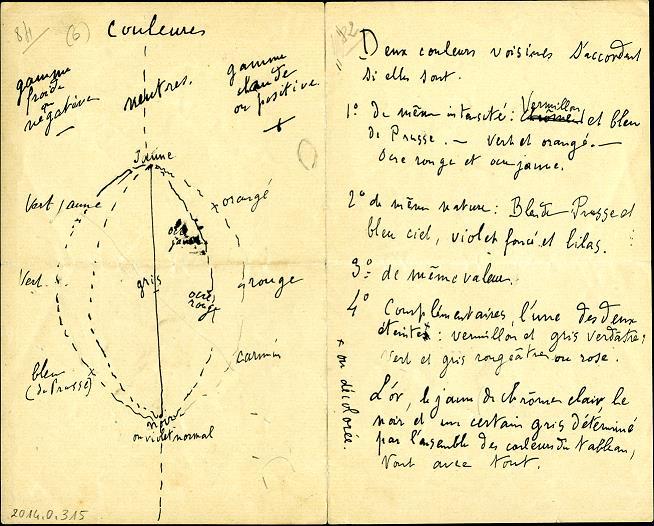 84
(6)
Couleures
gamme
froide
ou
négative
–
neutres.
gamme
chaude
ou positive.
+
Jaune
Vert jaune
+ orangé
ocre
jaune
Vert.
gris
ocre
rouge
rouge
bleu
(de Prusse)
carmin
noir
ou violet normal
2014.0.315
Deux couleurs voisines s'accordent
si elles sont.
1º de même intensité : Vermillon et bleu
de Prusse. – vert et orangé. –
Ocre rouge et ocre jaune.
2º de même nature : Bleu de Prusse et
bleu ciel, violet foncé et lilas.
3º de même valeur.
4º Complémentaires, l'une des deux
éteinte x : vermillon et gris verdâtre ;
Vert et gris rougeâtre ou rose.
x ou décolorée.
L'or, le jaune de chrôme clair, le
noir et un certain gris déterminé
par l'ensemble des couleurs du tableau,
vont avec tout.